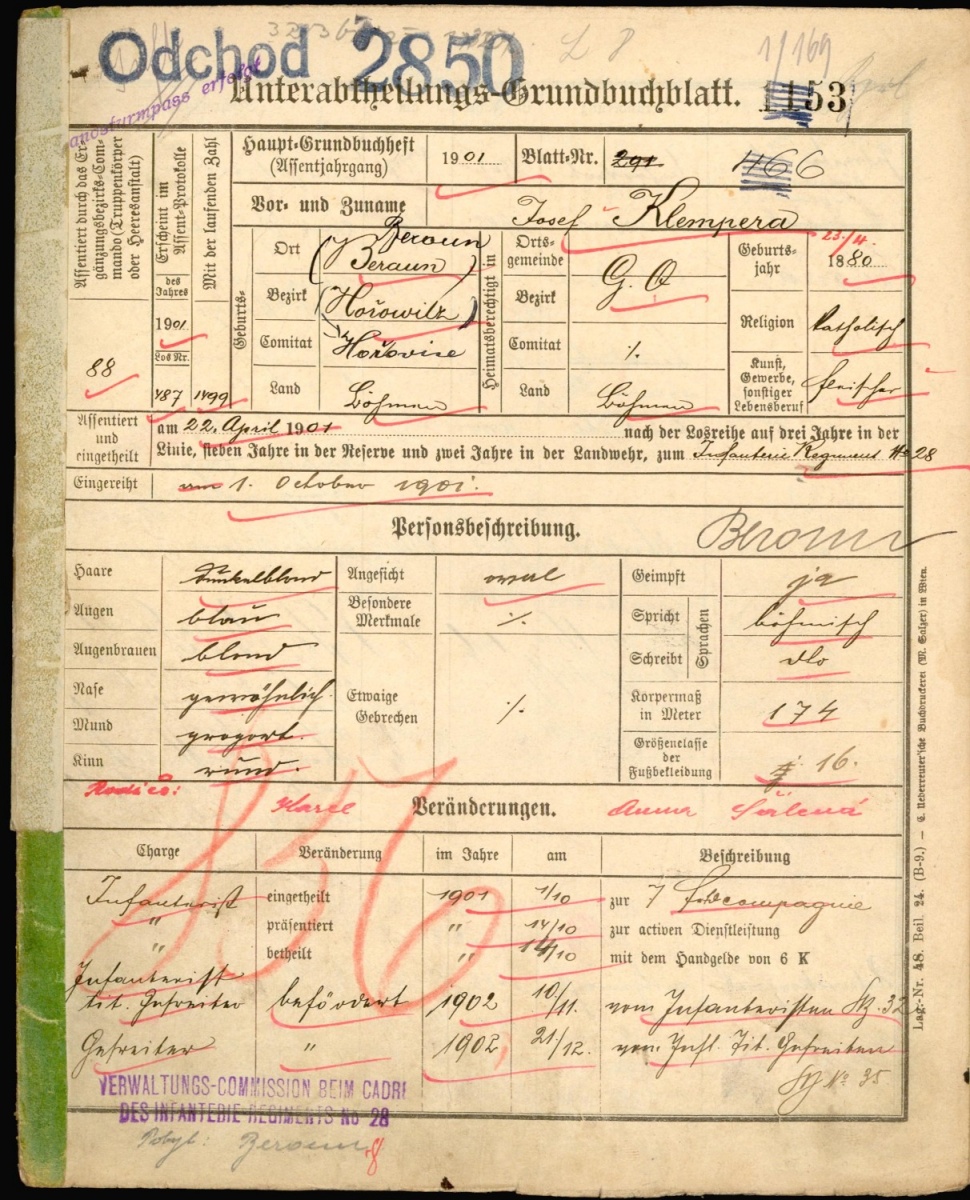 Odchod 2850
1/169
Landsturmpass erfolgt
Unterabtheilungs-Grundbuchblatt. 1153
Assentiert durch das Ergänzungsbezirks-Commando (Truppenkörper oder Heeresanstalt)
88
Erscheint im Assent-Protokolle
des Jahres
1901
Los Nr.
487
Mit der laufenden Zahl
1499
Haupt-Grundbuchheft
(Assentjahrgang)
1901
Blatt-Nr.
291
1166
Vor- und Zuname
Josef Klempera
Geburts-
Ort
Beroun
Beraun
Bezirk
Hořowitz
Comitat
Hořovice
Land
Böhmen
Heimatsberechtigt in
Ortsgemeinde
G. O
Bezirk
Comitat
·/.
Land
Böhmen
Geburtsjahr
23./4.
1880
Religion
katholisch
Kunst, Gewerbe, sonstiger Lebensberuf
fleischer
Assentiert und eingetheilt
am 22. April 1901 nach der Losreihe auf drei Jahre in der
Linie, sieben Jahre in der Reserve und zwei Jahre in der Landwehr, zum Infanterie Regiment No 28
Eingereiht
am 1. October 1901.
Personsbeschreibung.
Beroun
Haare
dunkelblond
Augen
blau
Augenbrauen
blond
Nase
gewöhnlich
Mund
proport.
Kinn
rund.
Angesicht
oval
Besondere Merkmale
·/.
Etwaige Gebrechen
·/.
Geimpft
ja
Spricht
Sprachen
böhmisch
Schreibt
dto
Körpermaß in Meter
174
Größenclasse der Fußbekleidung
16.
Rodiče:
Karel
Veränderungen.
Anna
Charge
Veränderung
im Jahre
am
Beschreibung
Infanterist eingetheilt 1901 1/10 zur 7 Feldcompagnie
" präsentiert " 14/10 zur activen Dienstleistung
" betheilt " 14/10 mit dem Handgelde von 6 K
Infanterist
tit. Gefreiter befördert 1902 10/11. vom Infanteristen 32
Gefreiter " 1902 21/12. vom Inft. Tit. Gefreiten
No 35
VERWALTUNGS-COMMISSION BEIM CADRE
DES INFANTERIE REGIMENTS No 28
Pobyt: Beroun
Lag.-Nr. 48. Beil. 24. (B-9.) — C. Ueberreuter'sche Buchdruckerei (M. Salzer) in Wien.